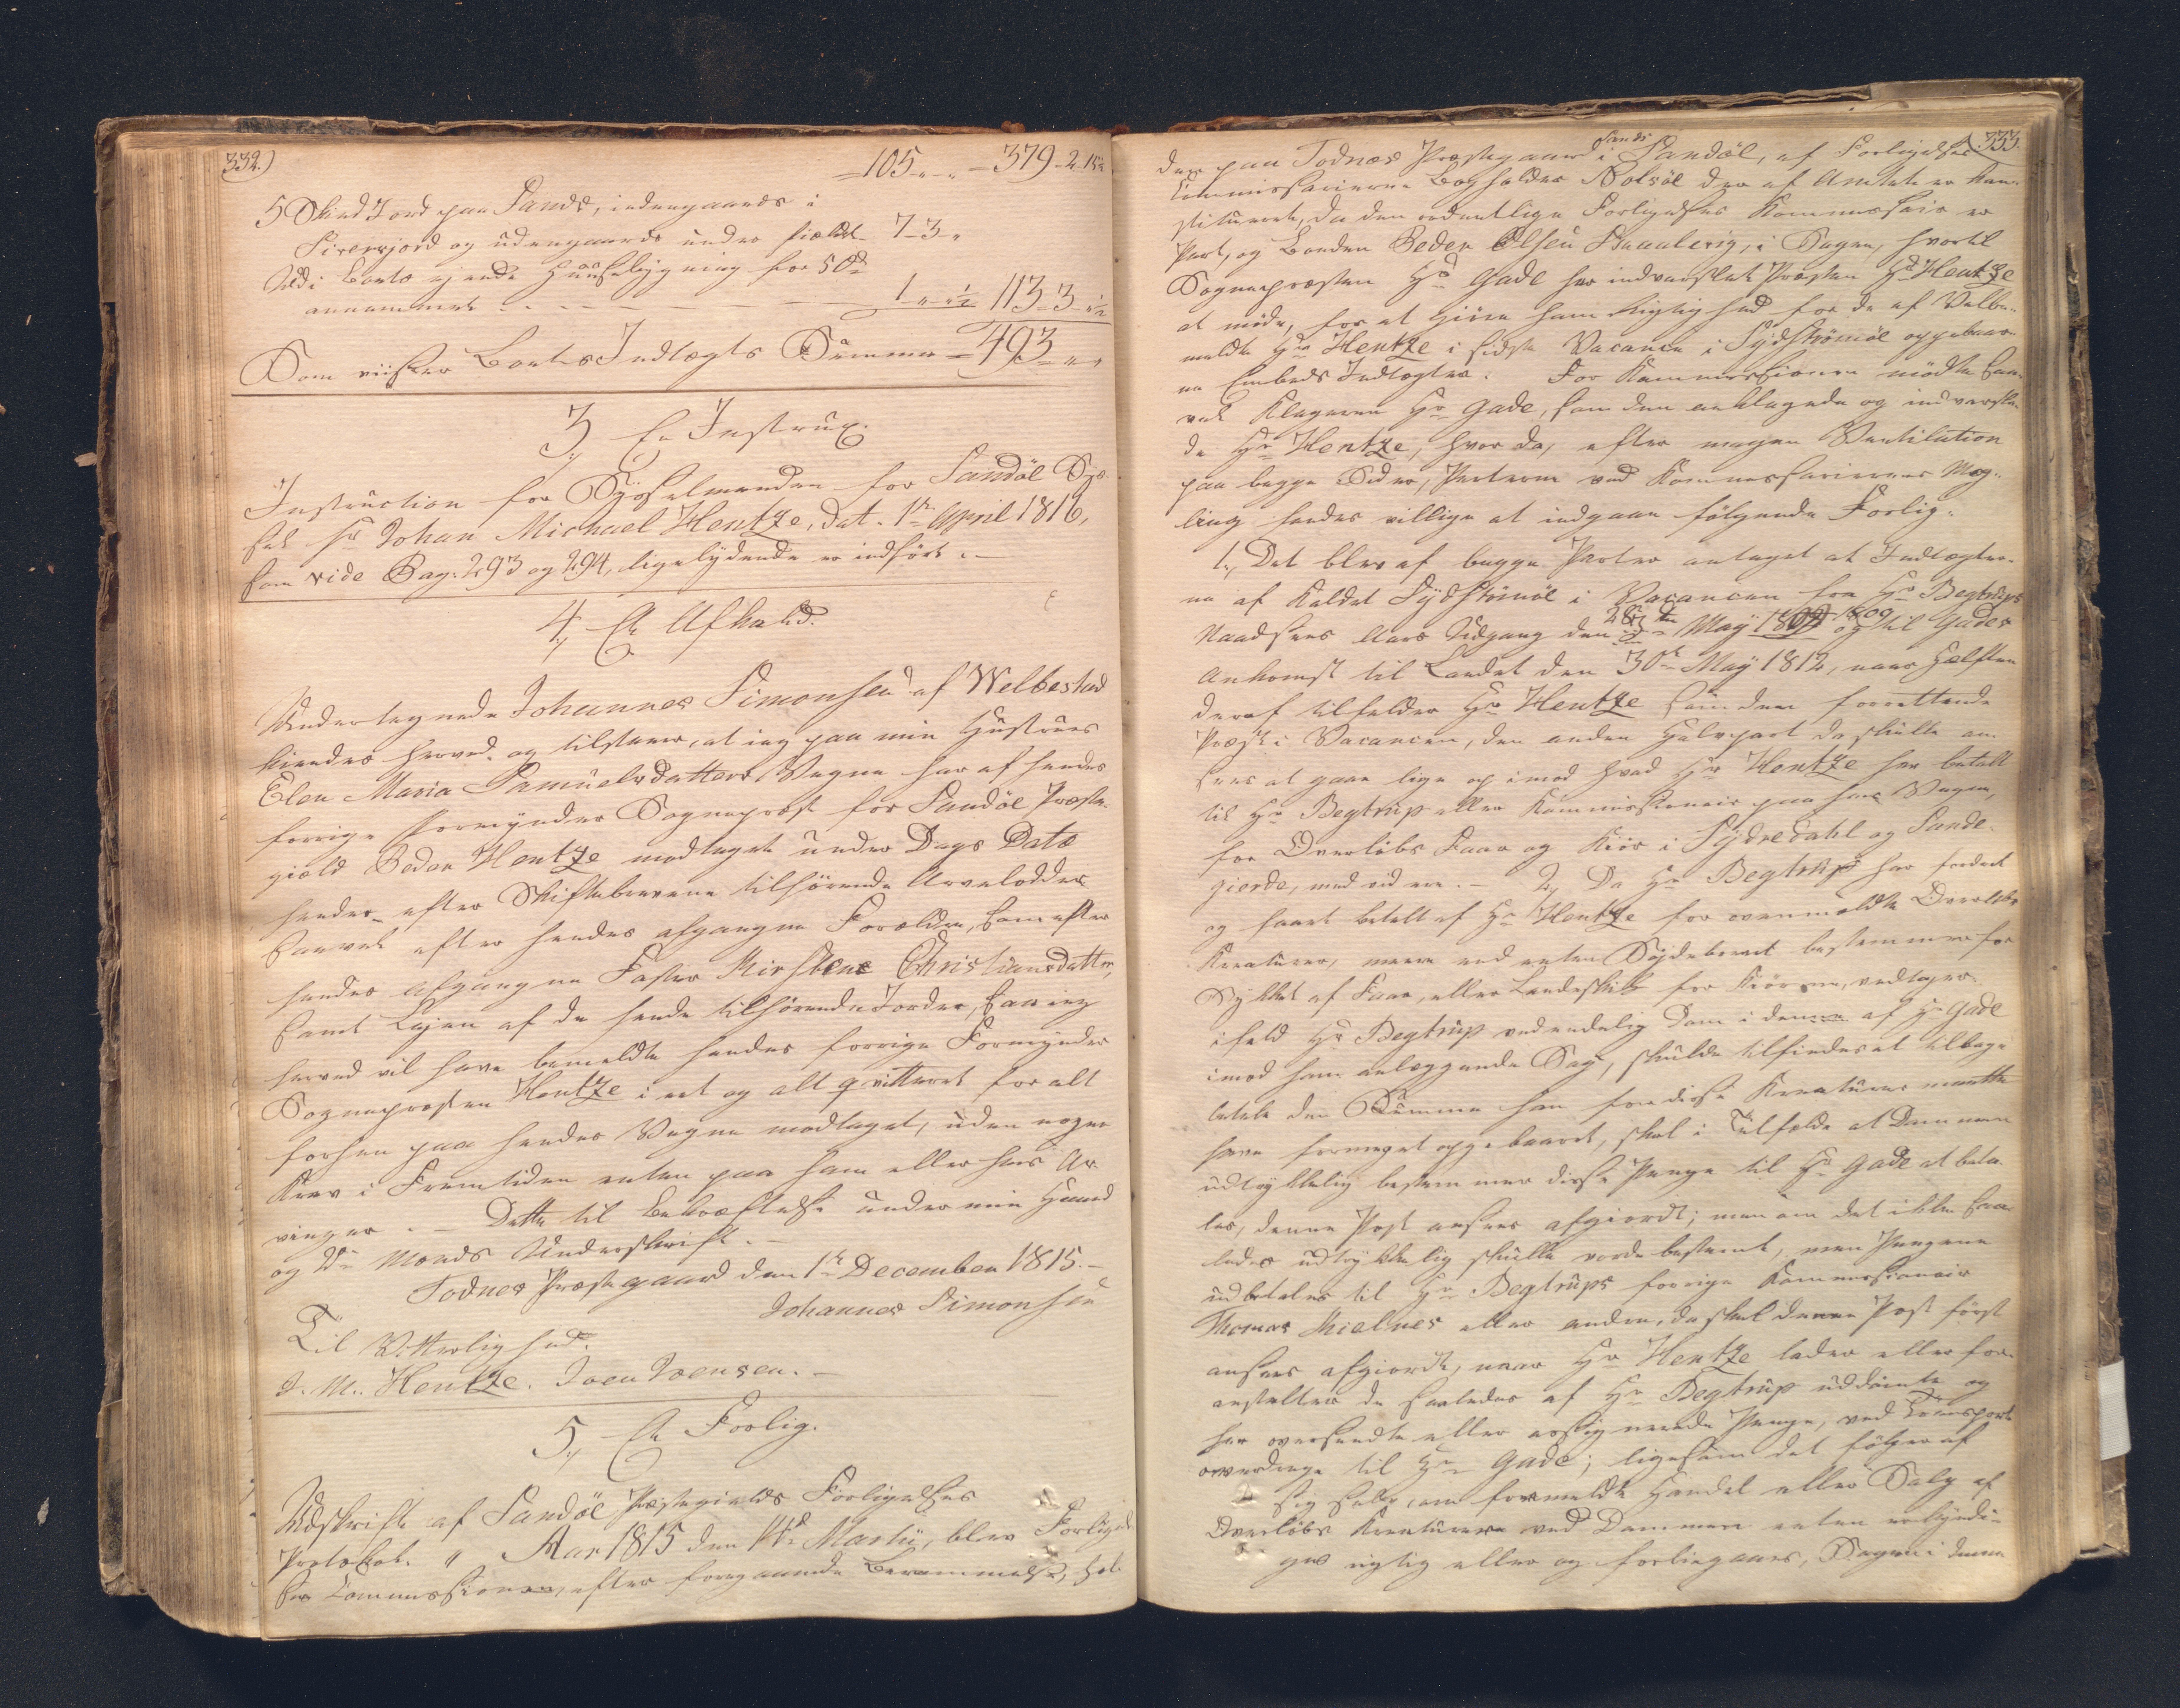 332.)
105 „ „ 379 - 2 - 15½
5 Skind Jord paa Sands, indengaards i
og udengaards under 7 - 3 „
Udi Boets ejende Huusebygning for 50
annammet 1 „ ½ 113 - 3 - ½
Som viiser Boets Indtægts Summa = 493 „ „
3, En Instrux.
Instruction for Sysselmanden for Sandöe Sys-
sel Hr Johan Michael Hentze, dat. 1te April 1816,
som vide Pag. 293 og 294, ligelydende er indført. —
4, En Afkald.
Undertegnede Johannes Simonsen af Welbestad
kiender herved og tilstaaer, at jeg paa min Hustrues
Elen Maria Samuelsdatters Vegne har af hendes
forrige Formynder Sognepræst for Sandöe Præste-
gield Peder Hentze modtaget under Dags Dato
hendes efter Skiftebrevene tilhørende Arvelodder
saavel efter hendes afgangne Forældre, som efter
hendes afgangne Faster Kirstene Christiansdatter,
samt Lejen af de hende tilhørende Jorder, saa jeg
herved vil have bemeldte hendes forrige Formynder
Sognepræsten Hentze i eet og alt qvitteret for alt
forhen paa hendes Vegne modtaget, uden nogen
Krav i Fremtiden enten paa ham eller hans Ar-
vinger. — Dette til Bekræftelse under min Haand
og Vne Mænds Underskrift. —
Todnes Præstegaard den 1te December 1815. —
Johannes Simonsen
Til Vitterlighed:
J. M. Hentze. Joen Joensen. —
5, En Forlig.
Udskrift af Sandöe Præstegields Forligelses
Protokol. „ Aar 1815 den Martii, blev Forligel-
ses Commissionen, efter foregaaende Berammelse, hol-
333.
den paa Todnes Præstegaard i Sands Sandöe, af Forligelses
Commissairerne Bogholder Nolsöe der af Amtet er kon-
stitueret, da den ordentlige Forligelses Kommissair er
Part, og Bonden Peder Olsen Skaalevig, i Sagen, hvortil
Sognepræsten Hr Gade har indvarslet Præsten Hr Hentze
at møde, for at giøre ham Rigtighed for de af Velbe-
meldte Hr Hentze i sidste Vacance i Sydströmöe oppebaar-
ne Embeds Indtægter. For Kommissionen mødte saa-
vel Klageren Hr Gade, som den anklagede og indvarsle-
de Hr Hentze, hvor da, efter megen Ventilation
paa begge Sider, Parterne ved Kommissairernes Mæg-
ling fandtes villige at indgaae følgende Forlig:
1., Det blev af begge Parter antaget at Indtægter-
ne af Kaldet Sydströmöe i Vacancen fra Hr Begtrups
Naadsens Aars Udgang den 28de May 1809 og til Gades
Ankomst til Landet den 30te May 1812, naar Hælften
deraf tilfalder Hr Hentze som den forrettende
Præst i Vacancen, den anden Halvpart da skulle an-
sees at gaae lige op imod hvad Hr Hentze har betalt
til Hr Begtrup eller Kommissionair paa hans Vegne,
for Overløbs Faar og Kiör i Sydredahl og Sande-
gierde, med vidre. — 2, Da Hr Begtrup har fordret
og faaet betalt af Hr Hentze for ovenmeldte Overløbs
Kreaturer, mere end enten Søidebrevet bestemmer for
Stykket af Faar, eller Landeskik for Kiörene, vedtages
ifald Hr Begtrup ved endelig Dom i denne af Hr Gade
imod ham anlæggende Sag, skulde tilfindes at tilbage
betale den Summa han for disse Kreaturer maatte
have formeget oppebaaret, skal i Tilfælde at Dommen
udtrykkelig bestemmer disse Penge til Hr Gade at beta-
les, denne Post ansees afgiordt; men om det ikke saa-
ledes udtrykkelig skulle vorde bestemt, men Pengene
udbetales til Hr Begtrups forrige Kommissionair
Thomas Mielnes eller anden, da skal denne Post først
ansees afgiordt, naar Hr Hentze lader eller for-
anstalter de saaledes af Hr Begtrup uddömte og
her oversendte eller assignerede Penge, ved Transport
overdrage til Hr Gade; ligesom det følger af
sig selv, om formeldte Handel eller Salg af
Overløbs Kreaturene ved Dommen enten erkjendi-
ges rigtig eller og forbiegaaes, Sagen i denne